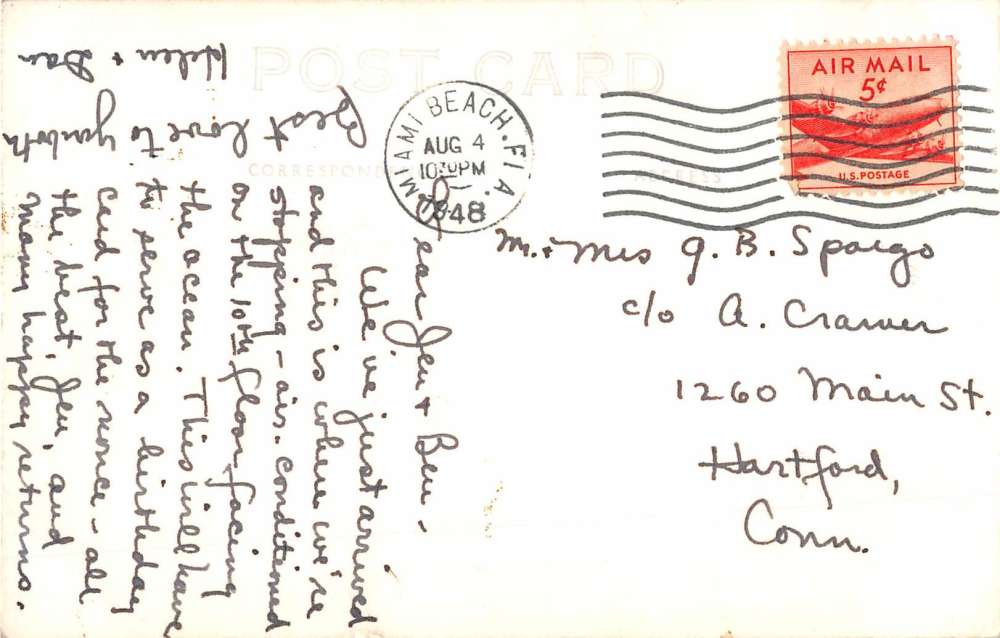 POST CARD
CORRESPONDENCE
ADDRESS
MIAMI BEACH, FLA.
AUG 4
1030PM
1948
AIR MAIL
5¢
U.S. POSTAGE
Dear Jen & Ben -
We've just arrived
and this is where we're
stopping - air-conditioned
on the 10th floor facing
the ocean. This will have
to serve as a birthday
card for the nonce - all
the best, Jen, and
many happy returns.
Best love to you both
Helen & Dan
Mr. & Mrs G. B. Spargo
c/o A. Cramer
1260 Main St.
Hartford,
Conn.